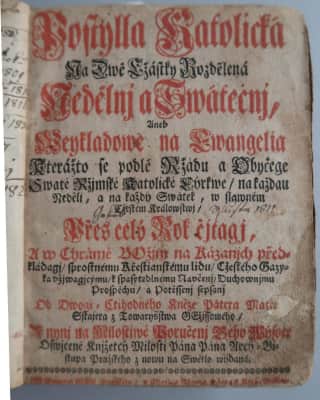 Postylla Katolická
Na Dwě Cžástky Rozdělená
Nedělnj a Swátečnj,
Aneb
Weykladowe na Ewangelia
Kterážto se podlé Ržádu a Obyčege
Swaté Ržjmské Katolické Cýrkwe / na každau
Neděli, a na každý Swátek, w slawném
Cžeském Králowstwj /
Přes celý Rok čtagj,
A w Chrámě Božjm na Kázanjch před-
kládagj / sprostnému Křestianskému lidu / Cžeského Gazy-
ka vžjwagjcýmu / k spasytedlnému Naučenj / Duchownjmu
Prospěchu / a Potěssenj sepsaný
Od Dwogj-Ctihodného Kněze Pátera Matěge
Sstajera z Towaryšstwa Gežjssowého /
A nynj na Milostiwé Poručenj Geho Wysoce
Oswjcené Knjžetcý Milosti Pána Pána Arcy-Bi-
skupa Pražského z nowu na Swětlo wydaná.